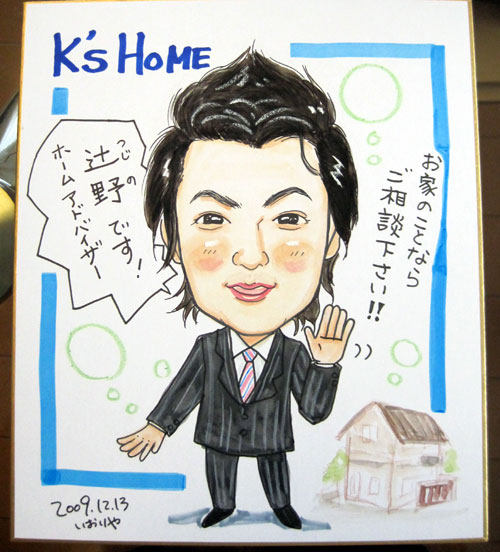 K's HOME
つじの
辻野です!
ホームアドバイザー
お家のことなら
ご相談下さい!!
2009.12.13
いおりや